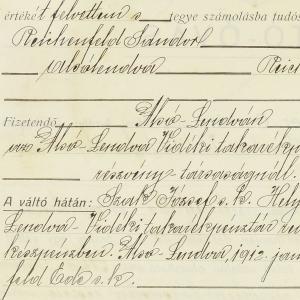 értékét felvettem s tegye számolásba tudós
Reichenfeld Sándor
Alsólendva Reic
Fizetendő Alsó-Lendván
az Alsó-Lendva Vidéki takarékp
részvény-társaságnál.
A váltó hátán: Szuk József s. k. Hely
Lendva-Vidéki takarékpénztár re
készpénzben. Alsó-Lendva, 1912. jan
feld Ede s. k.